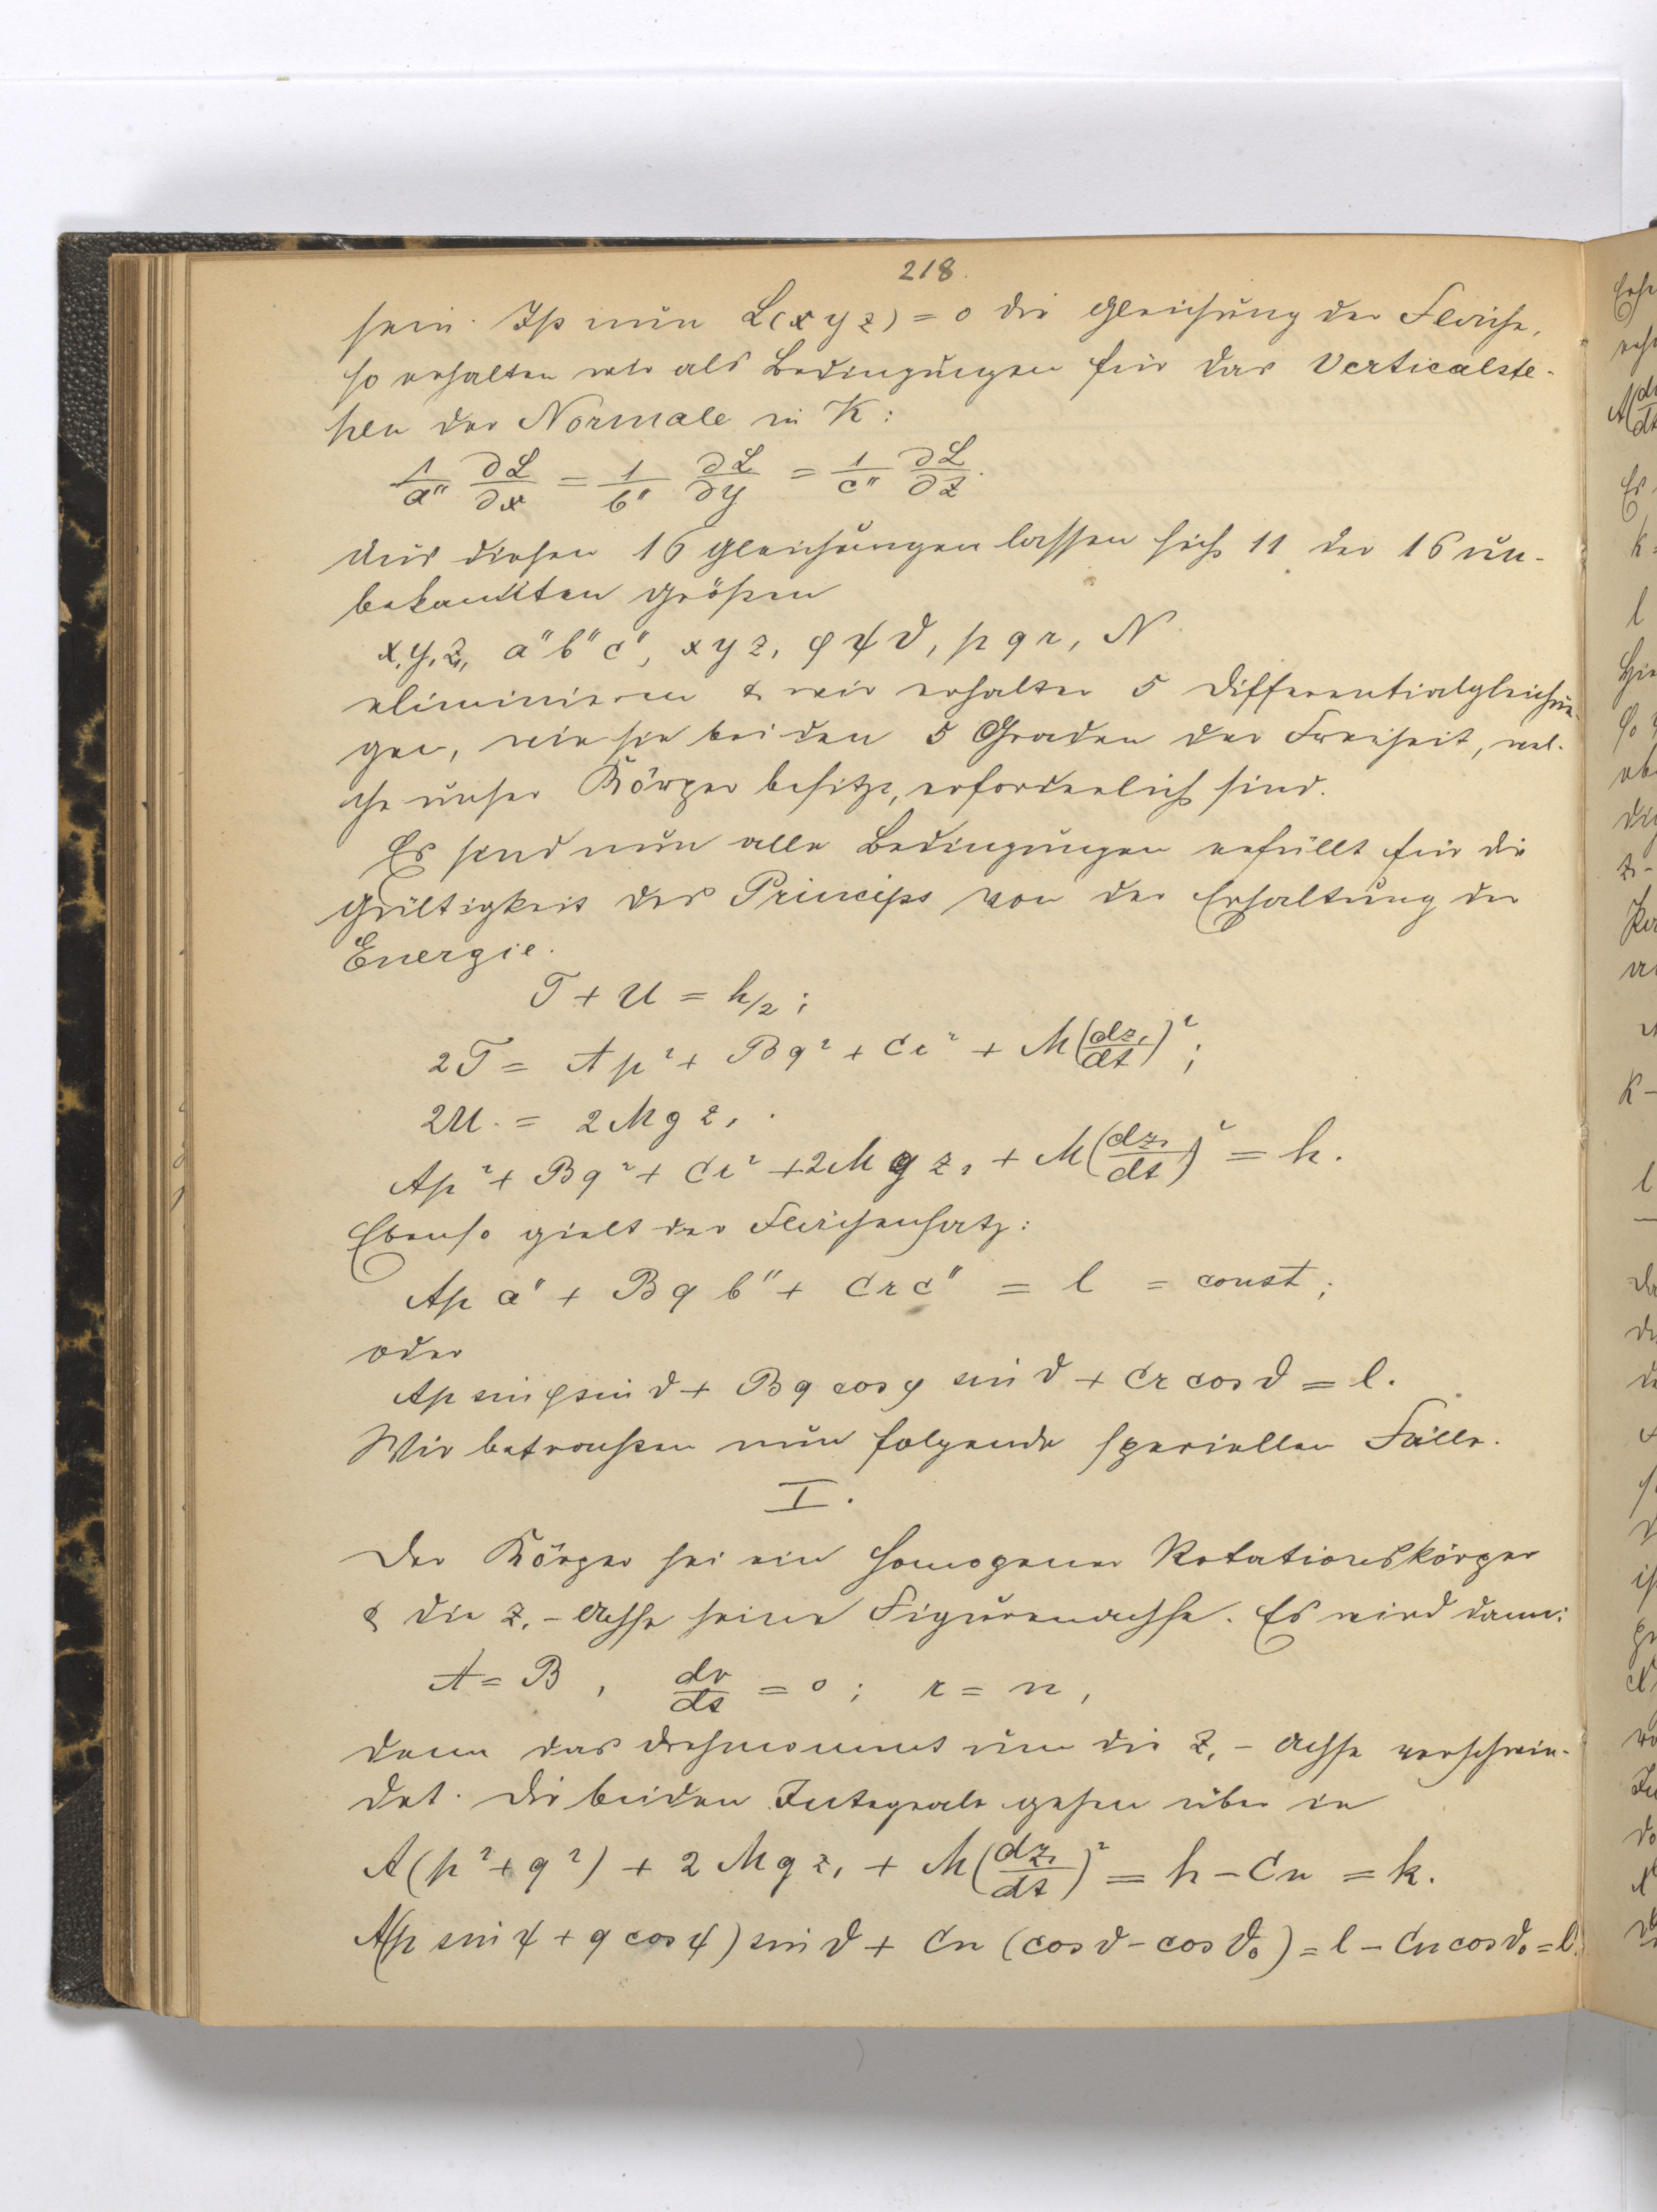 218.
sein. Ist nun L(x y z) = 0 die Gleichung der Fläche,
so erhalten wir als Bedingungen für das Verticalste-
hen der Normale in K:
1/a'' ∂L/∂x = 1/b'' ∂L/∂y = 1/c'' ∂L/∂z.
Aus diesen 16 Gleichungen lassen sich 11 der 16 un-
bekannten Größen
x₁y₁z₁, a'' b'' c'', x y z, φ ψ ϑ, p q r, N
eliminieren & wir erhalten 5 Differentialgleichun-
gen, wie sie bei den 5 Graden der Freiheit, wel-
che unser Körper besitzt, erforderlich sind.
Es sind nun alle Bedingungen erfüllt für die
Gültigkeit des Princips von der Erhaltung der
Energie.
T + U = h/2;
2T = Ap² + Bq² + Cr² + M(dz₁/dt)²;
2U = 2Mgz₁.
Ap² + Bq² + Cr² + 2Mgz₁ + M(dz₁/dt)² = h.
Ebenso gielt der Flächensatz:
Ap a'' + Bq b'' + Cr c'' = l = const;
oder
Ap sin φ sin ϑ + Bq cos φ sin ϑ + Cr cos ϑ = l.
Wir betrachten nun folgende speciellen Fälle.
I.
Der Körper sei ein homogener Rotationskörper
& die z₁-Achse seine Figurenachse. Es wird dann:
A = B, dr/dt = 0; r = n,
denn das Drehmoment um die z₁-Achse verschwin-
det. Die beiden Integrale gehen über in
A(p² + q²) + 2Mgz₁ + M(dz₁/dt)² = h - Cn = k.
A(p sin ψ + q cos ψ) sin ϑ + Cn (cos ϑ - cos ϑ₀) = l - Cn cos ϑ₀ = l'